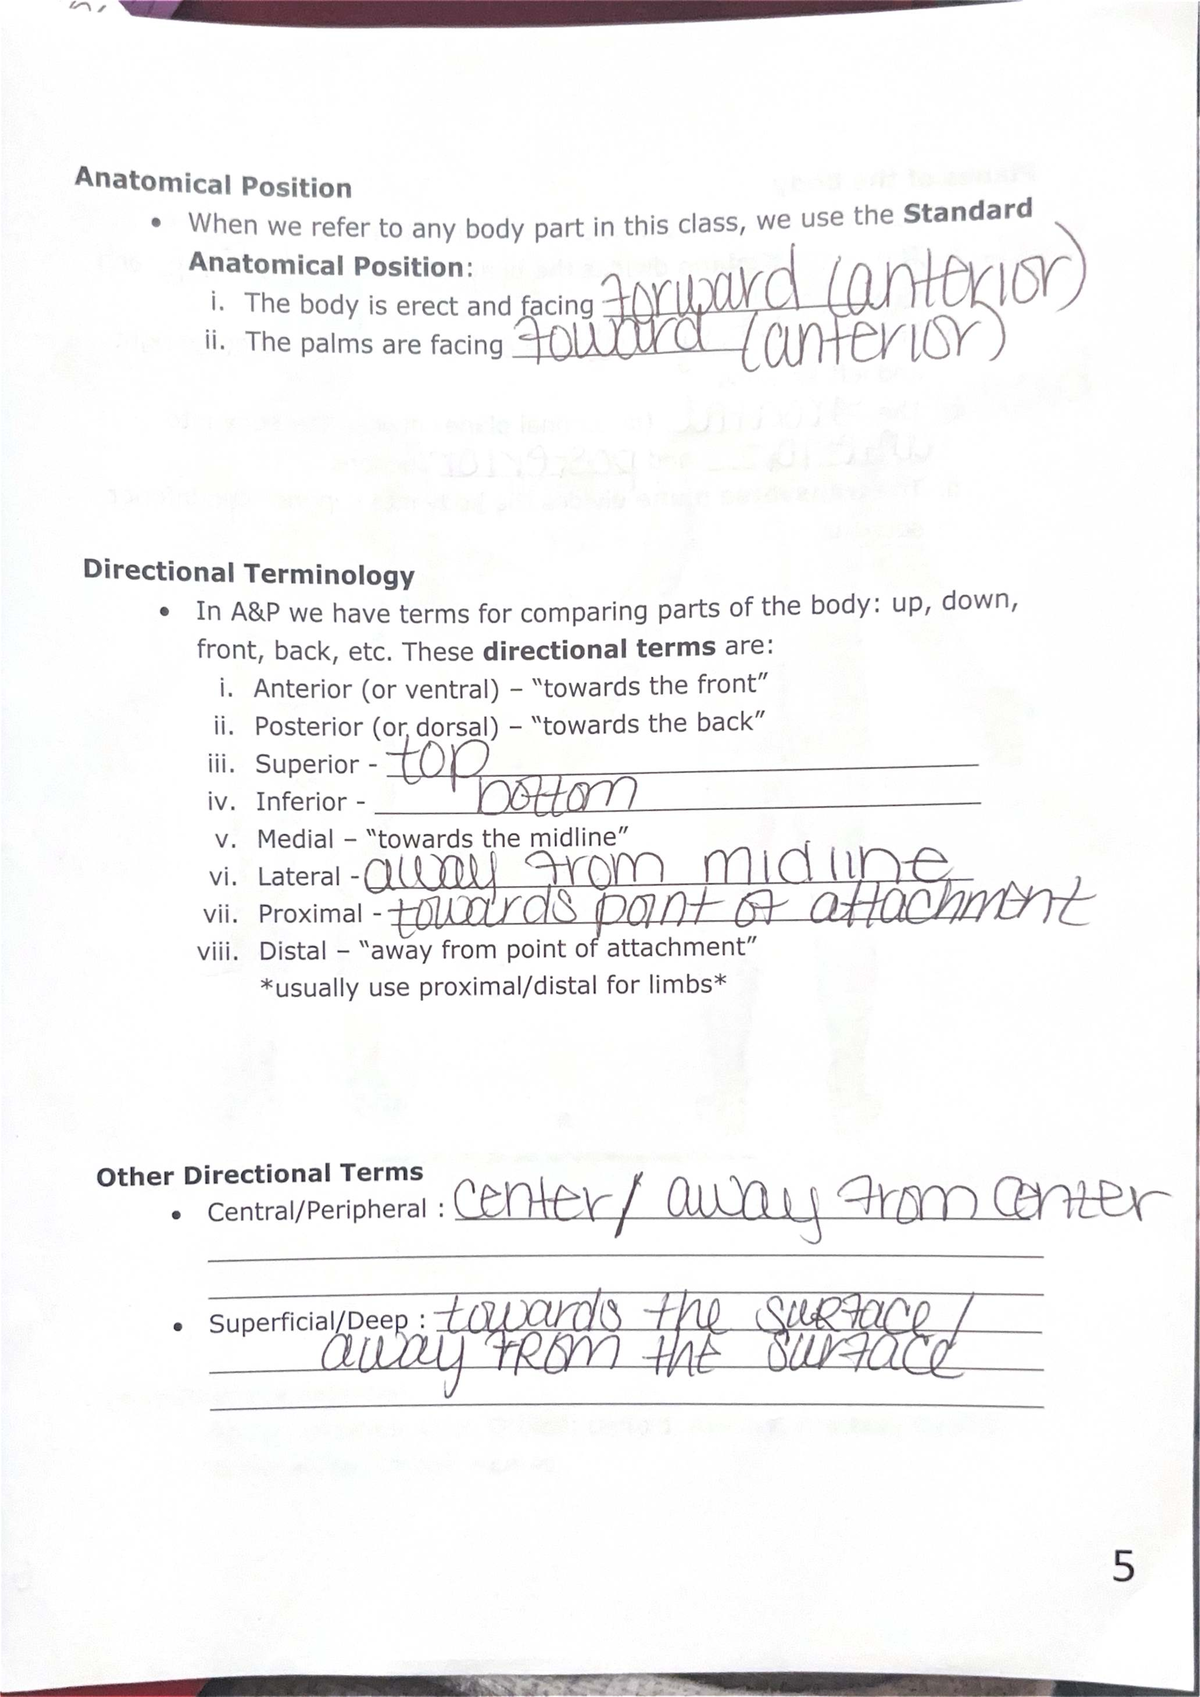 Anatomical Position
• When we refer to any body part in this class, we use the Standard
Anatomical Position:
i. The body is erect and facing forward (anterior)
ii. The palms are facing foward (anterior)
Directional Terminology
• In A&P we have terms for comparing parts of the body: up, down,
front, back, etc. These directional terms are:
i. Anterior (or ventral) – “towards the front”
ii. Posterior (or dorsal) – “towards the back”
iii. Superior - top
iv. Inferior - bottom
v. Medial – “towards the midline”
vi. Lateral - away from midline
vii. Proximal - towards point of attachment
viii. Distal – “away from point of attachment”
*usually use proximal/distal for limbs*
Other Directional Terms
• Central/Peripheral : center/ away from center
• Superficial/Deep : towards the surface/
away from the surface
5